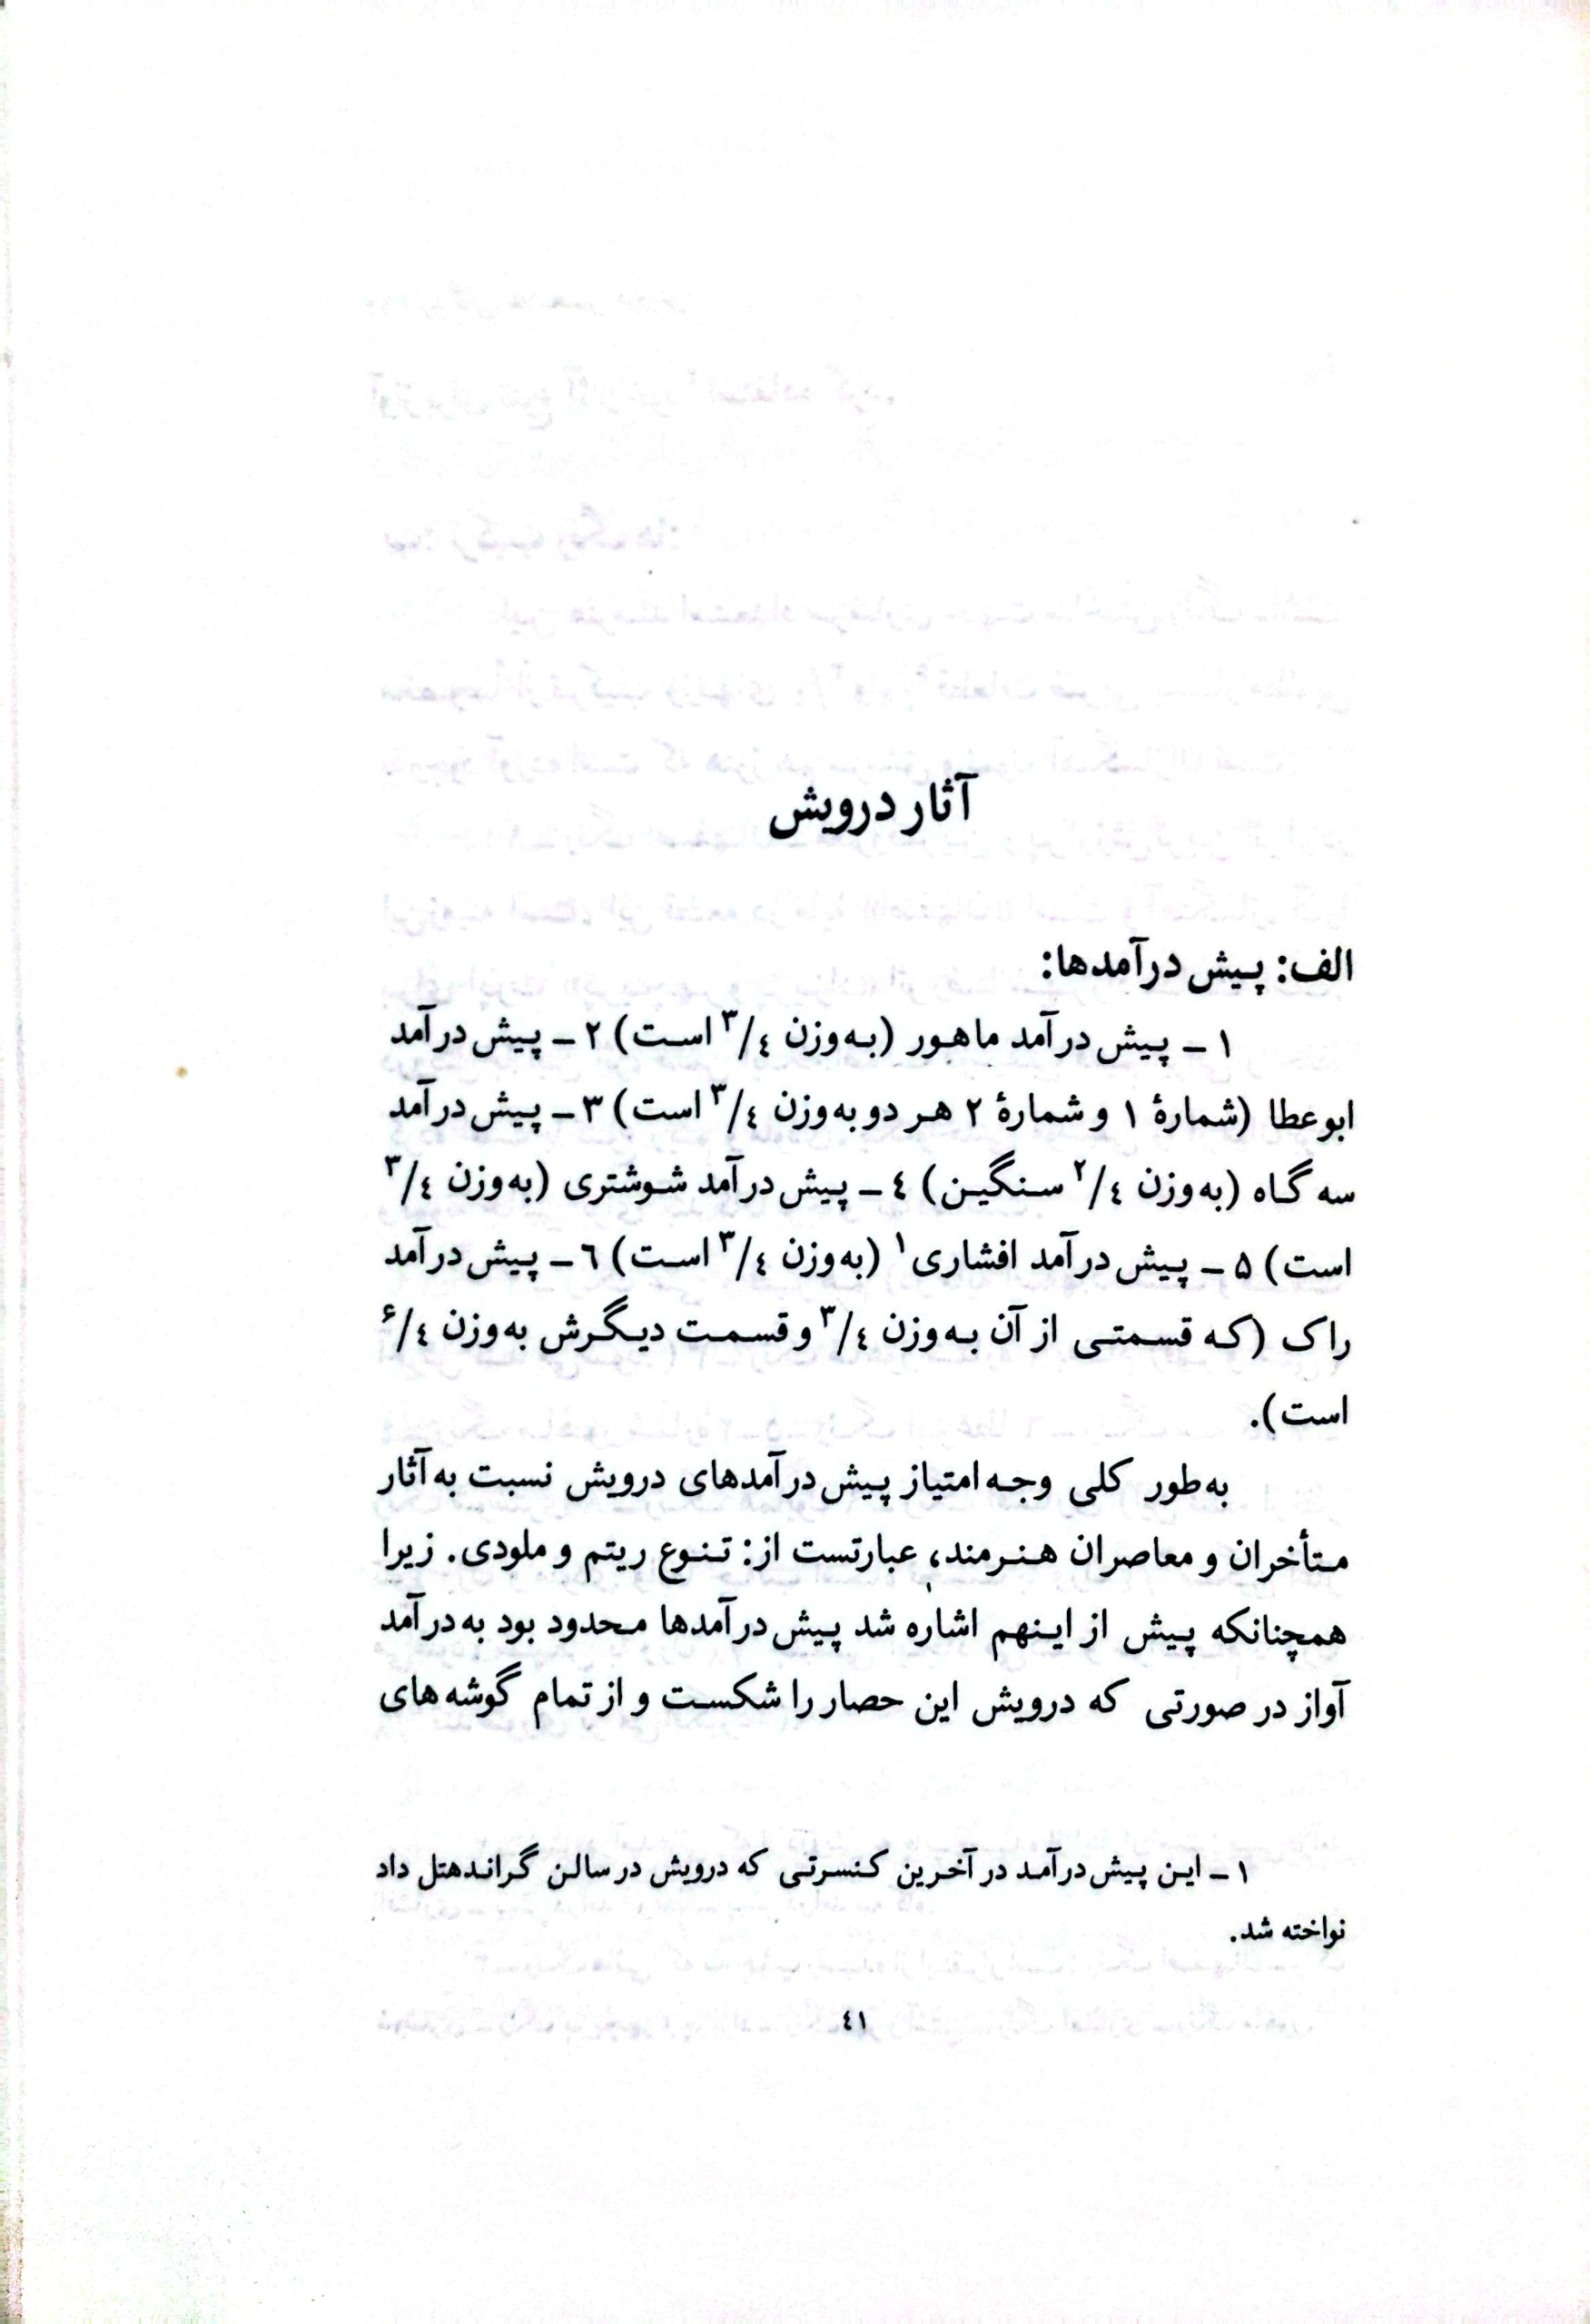 آثار درویش
الف: پیش درآمدها:
۱ ـ پیش درآمد ماهور (به وزن ۳/٤ است) ۲ ـ پیش درآمد
ابوعطا (شمارهٔ ۱ و شمارهٔ ۲ هر دو به وزن ۳/٤ است) ۳ ـ پیش درآمد
سه گاه (به وزن ۲/٤ سنگین) ٤ ـ پیش درآمد شوشتری (به وزن ۳/٤
است) ۵ ـ پیش درآمد افشاری۱ (به وزن ۳/٤ است) ٦ ـ پیش درآمد
راک (که قسمتی از آن به وزن ۳/٤ و قسمت دیگرش به وزن ۶/٤
است).
به طور کلی وجه امتیاز پیش درآمدهای درویش نسبت به آثار
متأخران و معاصران هنرمند، عبارتست از: تنوع ریتم و ملودی. زیرا
همچنانکه پیش از اینهم اشاره شد پیش درآمدها محدود بود به درآمد
آواز در صورتی که درویش این حصار را شکست و از تمام گوشه های
۱ ـ این پیش درآمد در آخرین کنسرتی که درویش در سالن گراندهتل داد
نواخته شد.
٤۱